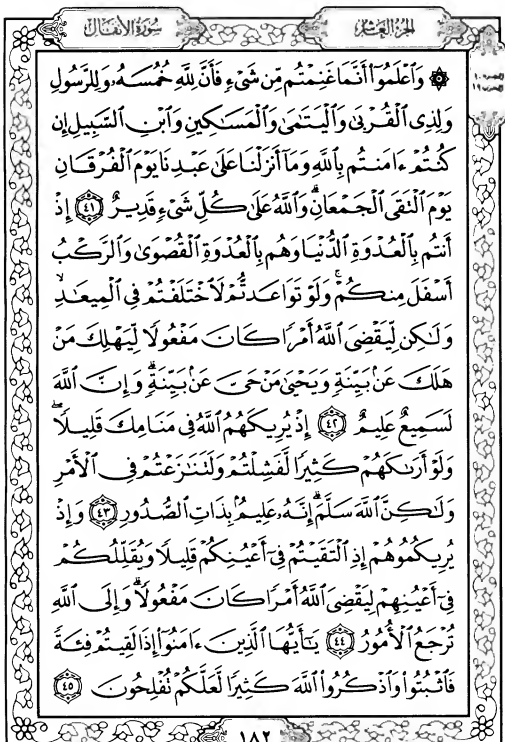 الجزء العاشر
سورة الأنفال
۞ وَٱعْلَمُوٓا۟ أَنَّمَا غَنِمْتُم مِّن شَىْءٍ فَأَنَّ لِلَّهِ خُمُسَهُۥ وَلِلرَّسُولِ
وَلِذِى ٱلْقُرْبَىٰ وَٱلْيَتَٰمَىٰ وَٱلْمَسَٰكِينِ وَٱبْنِ ٱلسَّبِيلِ إِن
كُنتُمْ ءَامَنتُم بِٱللَّهِ وَمَآ أَنزَلْنَا عَلَىٰ عَبْدِنَا يَوْمَ ٱلْفُرْقَانِ
يَوْمَ ٱلْتَقَى ٱلْجَمْعَانِ ۗ وَٱللَّهُ عَلَىٰ كُلِّ شَىْءٍ قَدِيرٌ ٤١ إِذْ
أَنتُم بِٱلْعُدْوَةِ ٱلدُّنْيَا وَهُم بِٱلْعُدْوَةِ ٱلْقُصْوَىٰ وَٱلرَّكْبُ
أَسْفَلَ مِنكُمْ ۚ وَلَوْ تَوَاعَدتُّمْ لَٱخْتَلَفْتُمْ فِى ٱلْمِيعَٰدِ ۙ
وَلَٰكِن لِّيَقْضِىَ ٱللَّهُ أَمْرًا كَانَ مَفْعُولًا لِّيَهْلِكَ مَنْ
هَلَكَ عَنۢ بَيِّنَةٍ وَيَحْيَىٰ مَنْ حَىَّ عَنۢ بَيِّنَةٍ ۗ وَإِنَّ ٱللَّهَ
لَسَمِيعٌ عَلِيمٌ ٤٢ إِذْ يُرِيكَهُمُ ٱللَّهُ فِى مَنَامِكَ قَلِيلًا ۖ
وَلَوْ أَرَىٰكَهُمْ كَثِيرًا لَّفَشِلْتُمْ وَلَتَنَٰزَعْتُمْ فِى ٱلْأَمْرِ
وَلَٰكِنَّ ٱللَّهَ سَلَّمَ ۗ إِنَّهُۥ عَلِيمٌۢ بِذَاتِ ٱلصُّدُورِ ٤٣ وَإِذْ
يُرِيكُمُوهُمْ إِذِ ٱلْتَقَيْتُمْ فِىٓ أَعْيُنِكُمْ قَلِيلًا وَيُقَلِّلُكُمْ
فِىٓ أَعْيُنِهِمْ لِيَقْضِىَ ٱللَّهُ أَمْرًا كَانَ مَفْعُولًا ۗ وَإِلَى ٱللَّهِ
تُرْجَعُ ٱلْأُمُورُ ٤٤ يَٰٓأَيُّهَا ٱلَّذِينَ ءَامَنُوٓا۟ إِذَا لَقِيتُمْ فِئَةً
فَٱثْبُتُوا۟ وَٱذْكُرُوا۟ ٱللَّهَ كَثِيرًا لَّعَلَّكُمْ تُفْلِحُونَ ٤٥
١٨٢